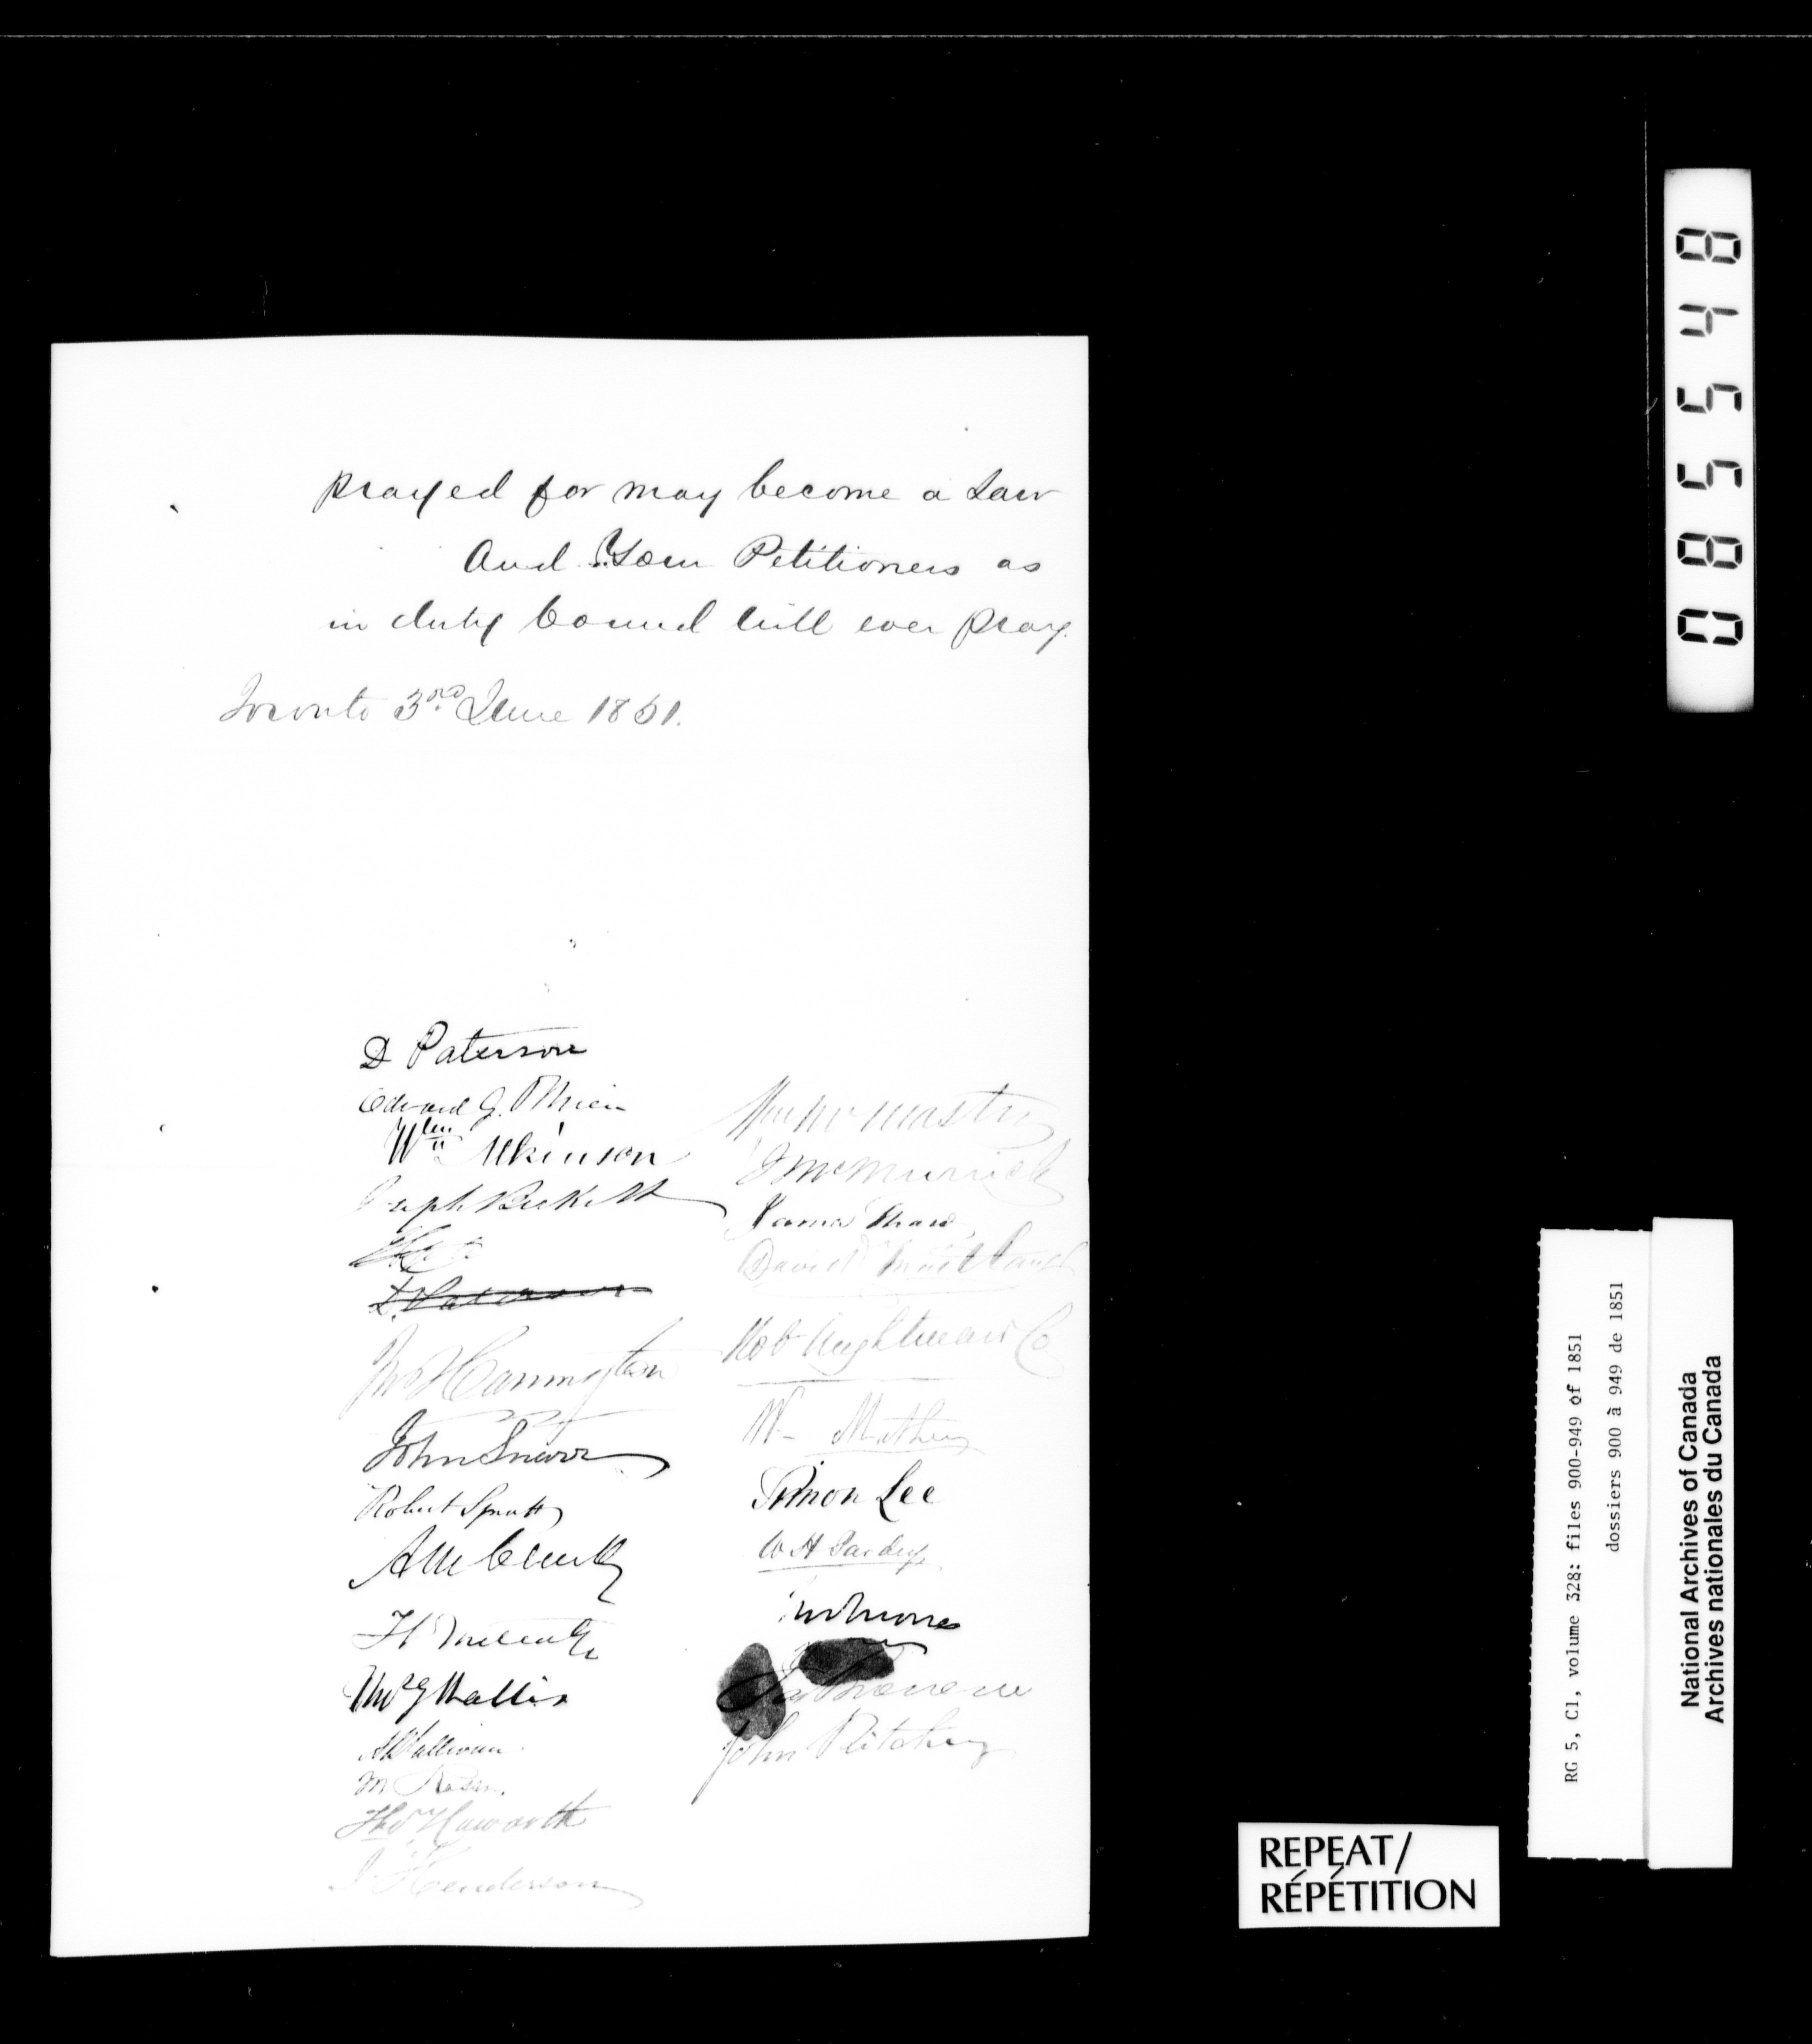 prayed for may become a Law
And Your Petitioners as
in duty bound will ever pray.
Toronto 3rd June 1851.
D Paterson
Edward G. O'Brien
Wm Atkinson
Joseph Beckett
Jno Harrington
John Smith
Robert Spratt
A
H
Thos J Wallis
A Sullivan
M
Thos Haworth
J Henderson
Wm McMaster
J McMurrich
James Shaw
David Maitland
Rob Wightman Co
Wm Mathers
Simon Lee
W H Pardey
John Ritchey
08554 8
RG 5, C1, volume 328: files 900-949 of 1851
dossiers 900 à 949 de 1851
National Archives of Canada
Archives nationales du Canada
REPEAT/
RÉPÉTITION